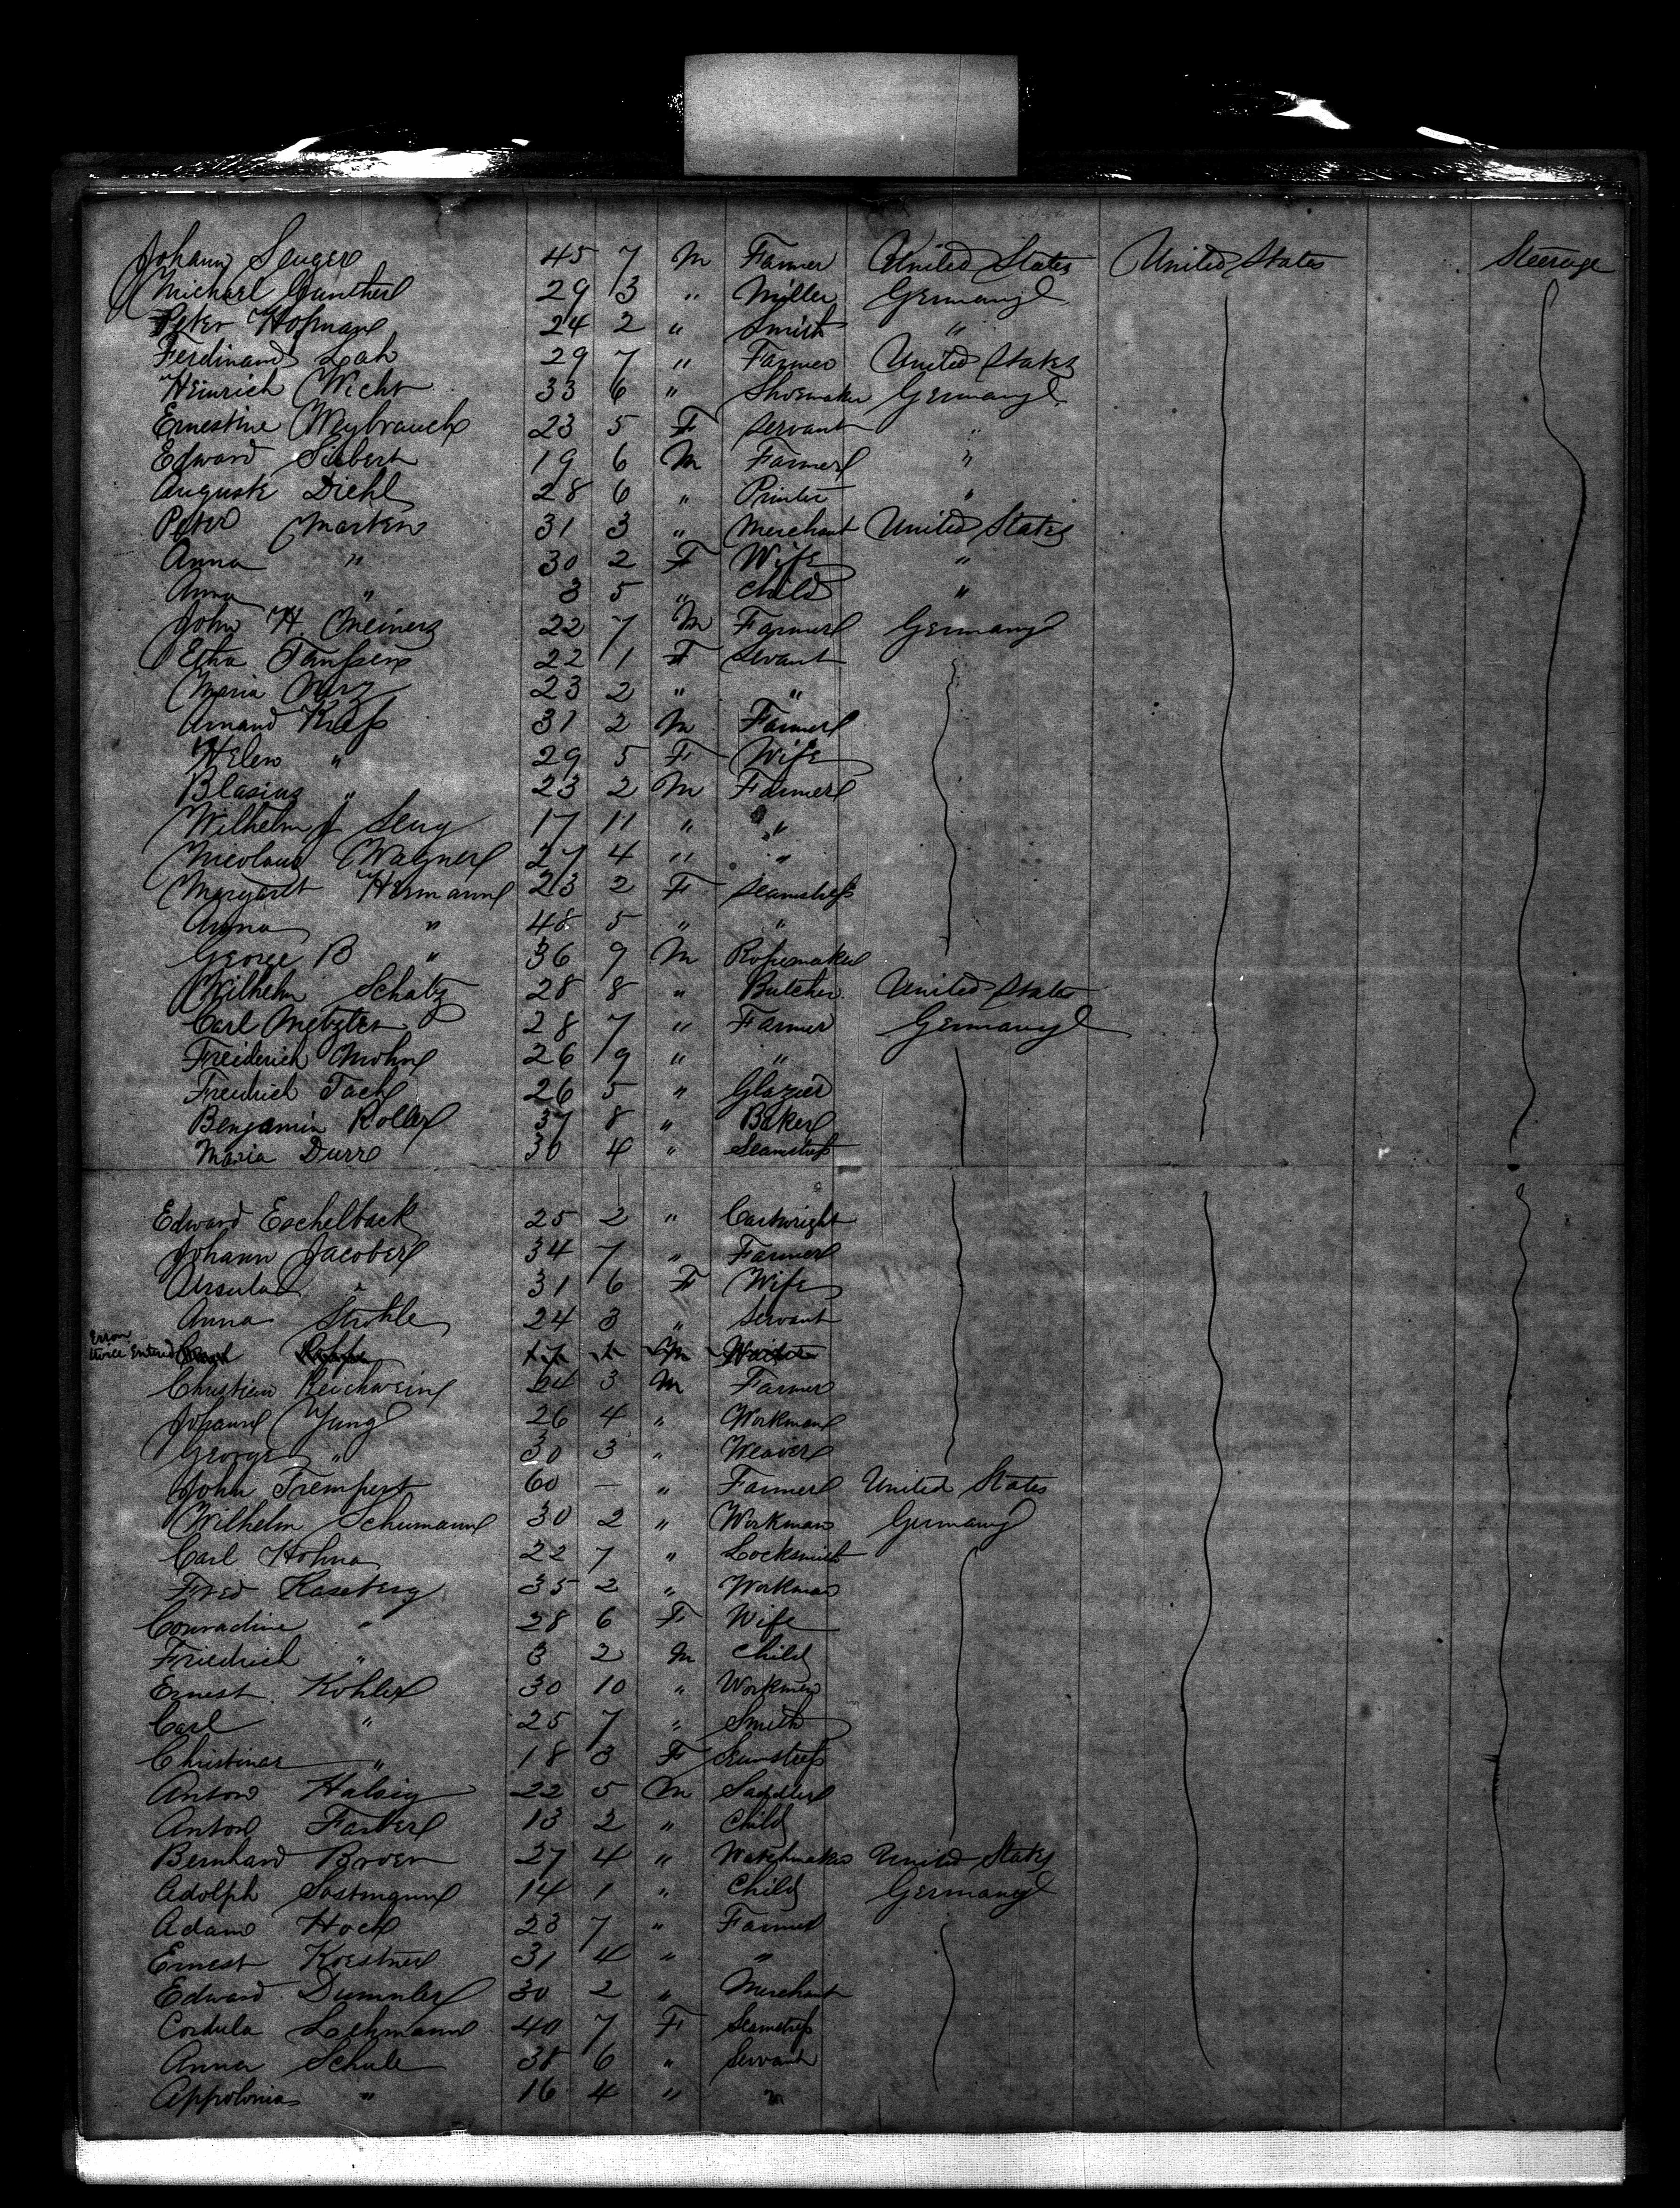 Johann Senger 45 7 M Farmer United States United States Steerage
Michael Gunther 29 3 " Miller Germany
Peter Hofman 24 2 " Smith "
Ferdinand Lah 29 7 " Farmer United States
Heinrich Wicht 33 6 " Shoemaker Germany
Ernestine Weybrauch 23 5 F Servant "
Edward Sebert 19 6 M Farmer "
Auguste Diehl 28 6 " Printer "
Peter Marten 31 3 " Merchant United States
Anna " 30 2 F Wife "
Anna " 3 5 " Child "
John H Meiners 22 7 M Farmer Germany
Etha Janssen 22 1 F Servant
Maria 23 2 " "
Amand Kress 31 2 M Farmer
Helen " 29 5 F Wife
Blasius " 23 2 M Farmer
Wilhelm J Seng 17 11 " "
Nicolaus Wagner 27 4 " "
Margaret Hermann 23 2 F Seamstress
Anna " 48 5 " "
George B " 36 9 M Ropemaker
Wilhelm Schatz 28 8 " Butcher United States
Carl Metzler 28 7 " Farmer Germany
Freiderich Mohn 26 9 " "
Freidrich Jack 26 5 " Glazier
Benjamin Koller 37 8 " Baker
Maria Durr 30 4 " Seamstress
Edward Eschelback 25 2 " Cartwright
Johann Jacober 34 7 " Farmer
Ursula " 31 6 F Wife
Anna Strohle 24 3 " Servant
Error twice Entered 17 1 M Waiter
Christian Reichwein 24 3 M Farmer
Johann Yung 26 4 " Workman
George " 30 3 " Weaver
John Trempert 60 — " Farmer United States
Wilhelm Schumann 30 2 " Workman Germany
Carl Hohna 22 7 " Locksmith
Fred Kaseberg 35 2 " Workman
Conradine " 28 6 F Wife
Friedrich " 3 2 M Child
Ernest Kohler 30 10 " Workman
Carl " 25 7 " Smith
Christinar " 18 3 F Seamstress
Anton Halsig 22 5 M Saddler
Anton Farber 13 2 " Child
Bernhard Broer 27 4 " Watchmaker United States
Adolph Sostmann 14 1 " Child Germany
Adam Hock 23 7 " Farmer
Ernest Koestner 31 4 " "
Edward Dummler 30 2 " Merchant
Cordula Lehmann 40 7 F Seamstress
Anna Schule 38 6 " Servant
Appolonia " 16 4 " "